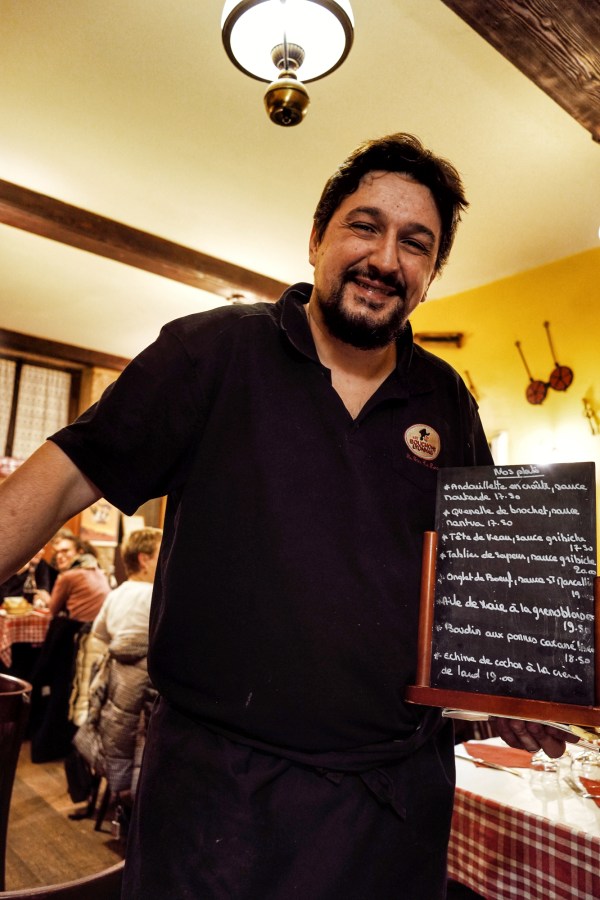 LES
BOUCHONS
LYONNAIS
Nos plats
* Andouillette en croûte, sauce
moutarde 17.50
* Quenelle de brochet, sauce
nantua 17.50
* Tête de Veau, sauce gribiche
17.50
* Tablier de sapeur, sauce gribiche
20.00
* Onglet de Boeuf, sauce St Marcellin
19
* Aile de Raie à la grenobloise
19.50
* Boudin aux pommes caramélisées
18.50
* Echine de cochon à la crème
de lard 19.00